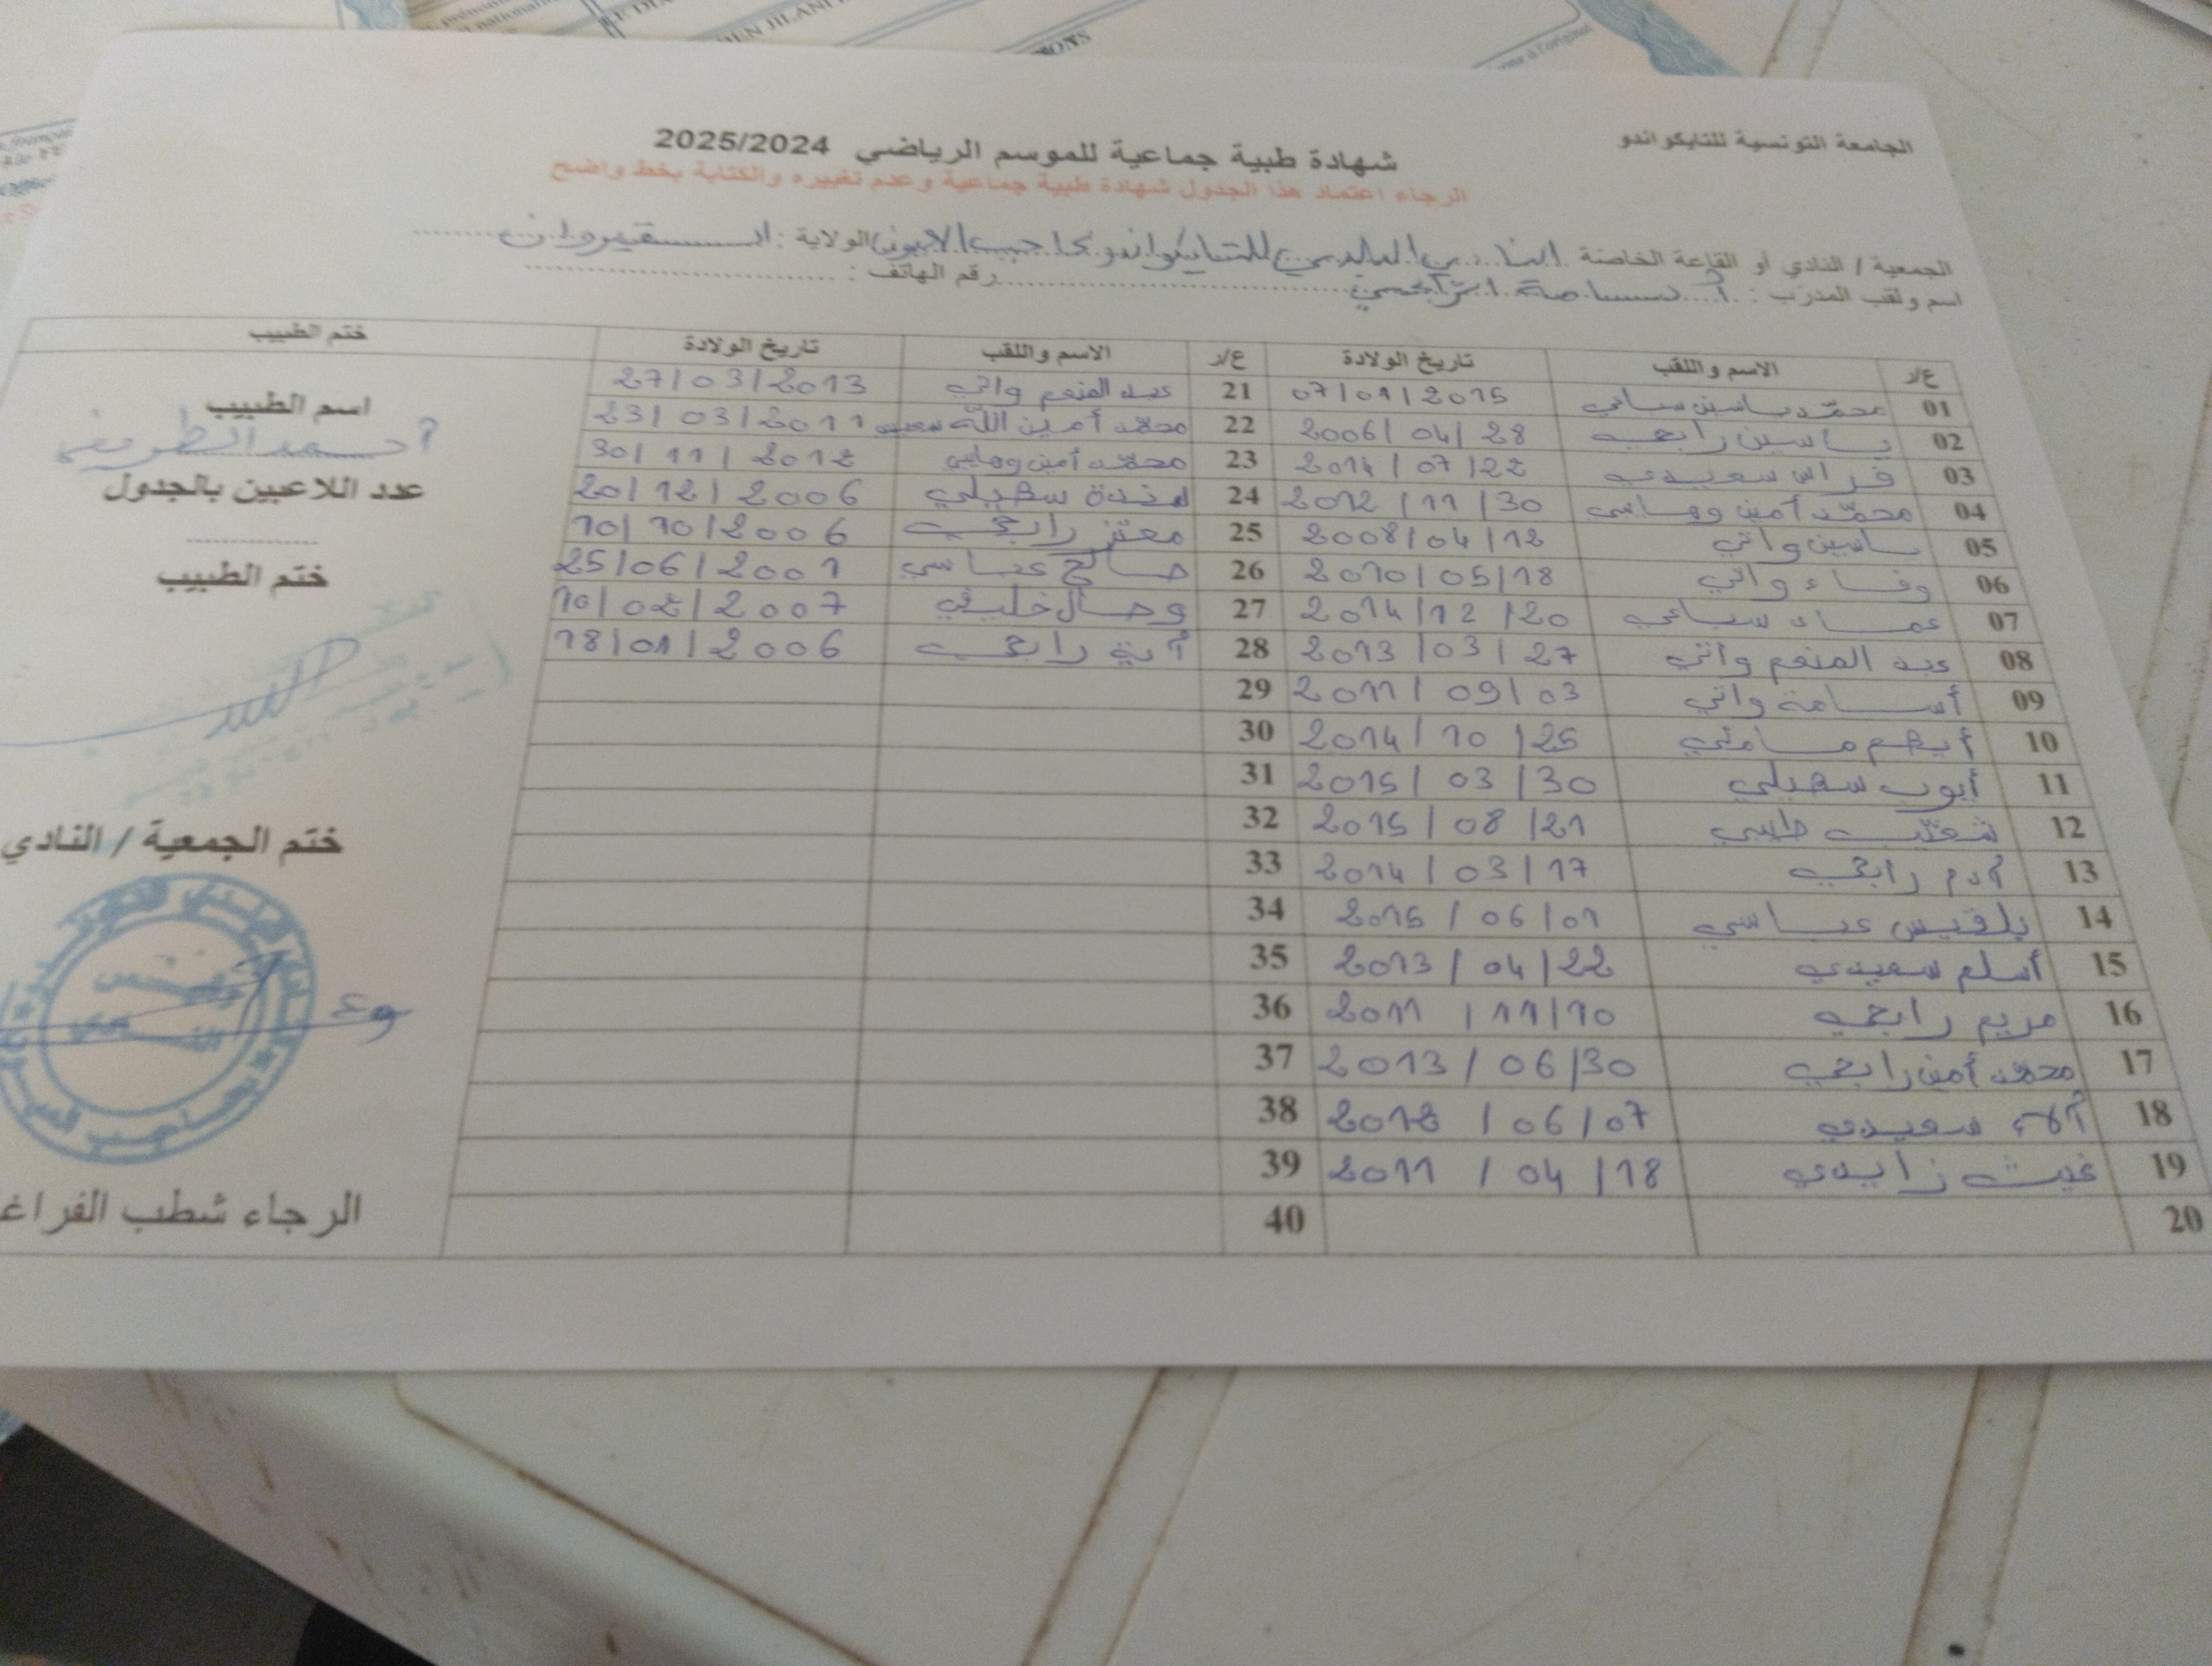 الجامعة التونسية للتايكواندو
شهادة طبية جماعية للموسم الرياضي 2025/2024
الرجاء اعتماد هذا الجدول شهادة طبية جماعية وعدم تغييره والكتابة بخط واضح
الجمعية / النادي أو القاعة الخاصة النادي البلدي للتايكواندو بحاجب العيون الولاية : القيروان
اسم ولقب المدرب : أسامة الرابحي رقم الهاتف :
ع/ر الاسم واللقب تاريخ الولادة ع/ر الاسم واللقب تاريخ الولادة ختم الطبيب
01 محمد ياسين 07/01/2015 21 عبد المنعم واني 27/03/2013
02 ياسين رابحي 2006/04/28 22 محمد أمين الله 23/03/2011
03 فراس سعيدي 2014/07/22 23 محمد أمين 30/11/2012
04 محمد أمين 2012/11/30 24 هندة سهيلي 20/12/2006
05 ياسين واني 2008/04/12 25 معتز رابحي 10/10/2006
06 وفاء واني 2010/05/18 26 صالح عباسي 25/06/2001
07 عماد 2014/12/20 27 وصال خليفي 10/02/2007
08 عبد المنعم واني 2013/03/27 28 آية رابحي 18/01/2006
09 أسامة واني 2011/09/03 29
10 أيهم 2014/10/25 30
11 أيوب سهيلي 2015/03/30 31
12 2015/08/21 32
13 آدم رابحي 2014/03/17 33
14 بلقيس عباسي 2015/06/01 34
15 أسلم سعيدي 2013/04/22 35
16 مريم رابحي 2011/11/10 36
17 محمد أمين رابحي 2013/06/30 37
18 آلاء سعيدي 2012/06/07 38
19 غيث زايدي 2011/04/18 39
20 40
اسم الطبيب
عدد اللاعبين بالجدول
ختم الطبيب
ختم الجمعية / النادي
الرجاء شطب الفراغ